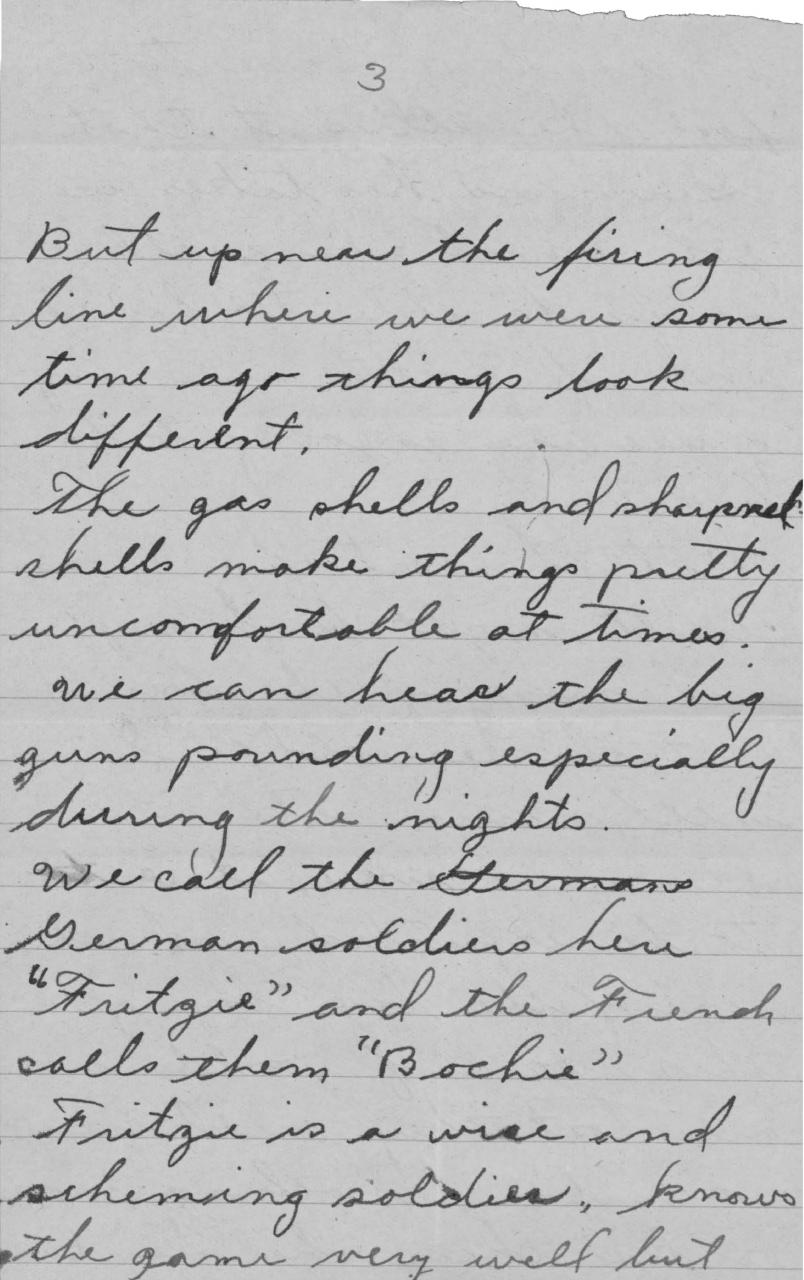 3
But up near the firing
line where we were some
time ago things look
different.
The gas shells and sharpnel
shells make things pretty
uncomfortable at times.
We can hear the big
guns pounding especially
during the nights.
We call the Germans
German soldiers here
"Fritzie" and the French
calls them "Bochie"
Fritzie is a wise and
scheming soldier, knows
the game very well but